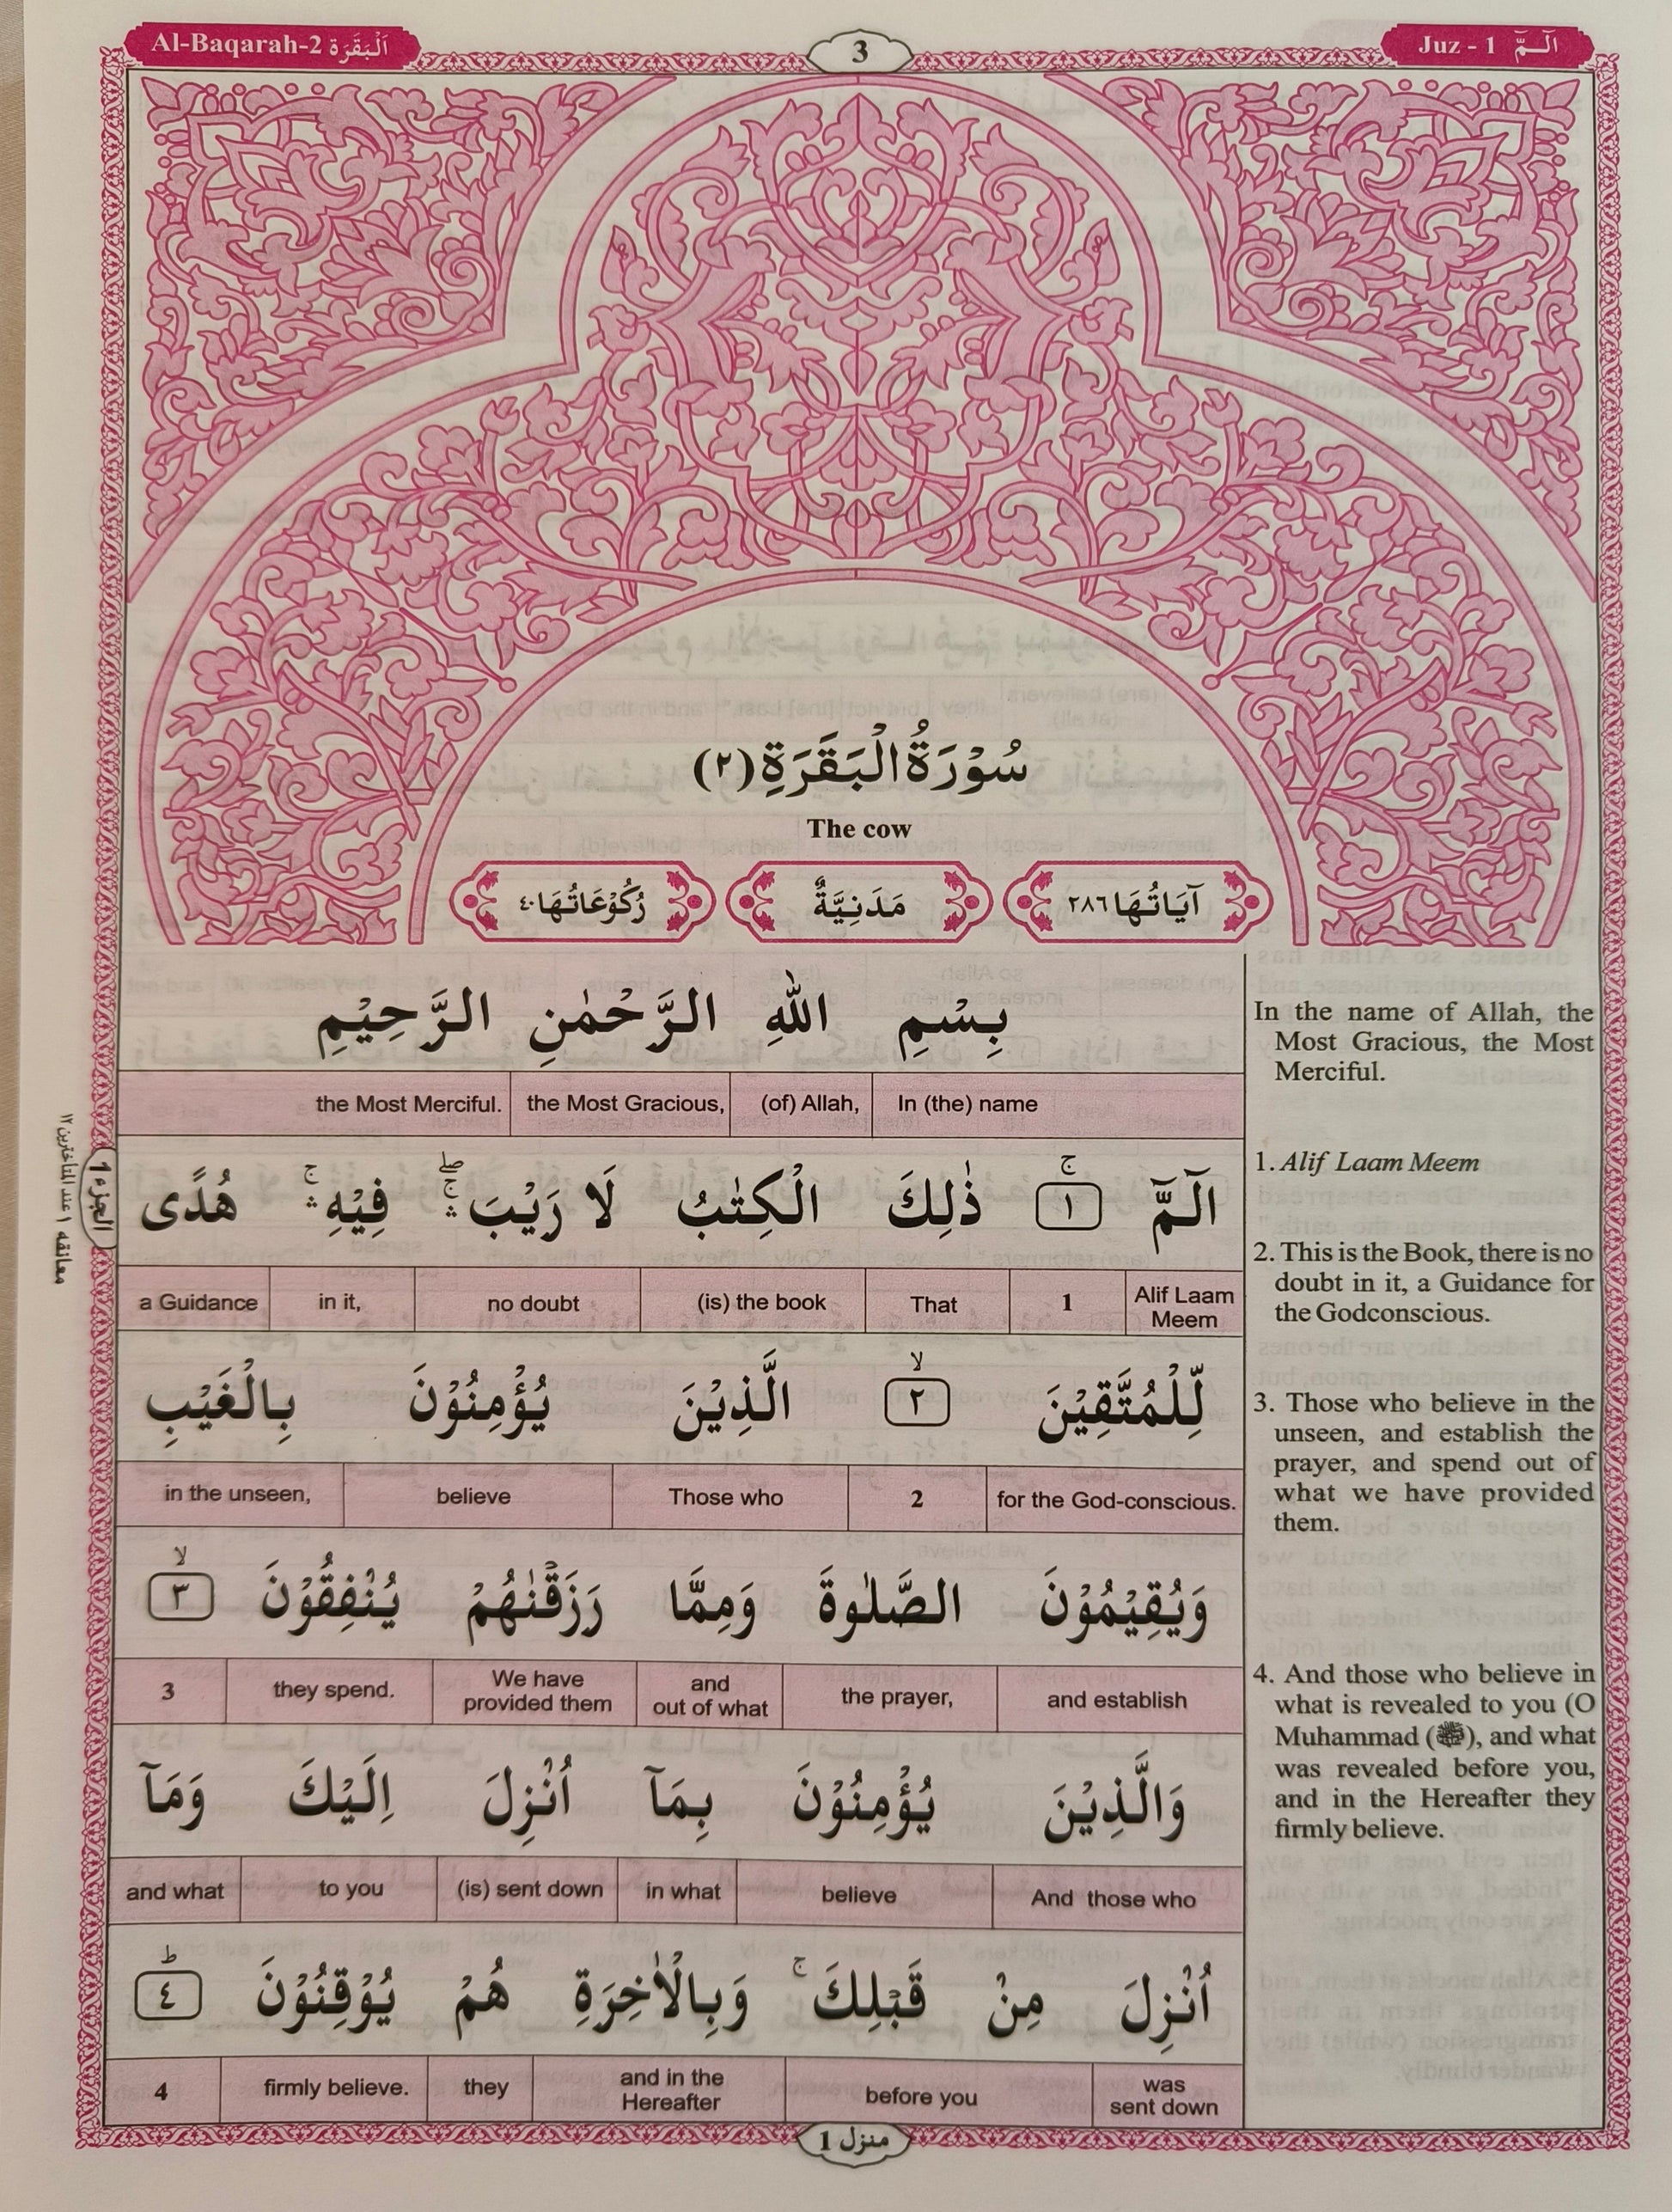 Al-Baqarah-2 اَلْبَقَرَة
3
Juz - 1 الٓمّٓ
سُوْرَةُ الْبَقَرَةِ (٢)
The cow
آيَاتُهَا ٢٨٦
مَدَنِيَّةٌ
رُكُوْعَاتُهَا ٤٠
بِسْمِ اللّٰهِ الرَّحْمٰنِ الرَّحِيْمِ
the Most Merciful. the Most Gracious, (of) Allah, In (the) name
الٓمّٓ ۚ ١ ذٰلِكَ الْكِتٰبُ لَا رَيْبَ ۛۚۖ فِيْهِ ۛۚ هُدًى
a Guidance in it, no doubt (is) the book That 1 Alif Laam Meem
لِّلْمُتَّقِيْنَ ۙ ٢ الَّذِيْنَ يُؤْمِنُوْنَ بِالْغَيْبِ
in the unseen, believe Those who 2 for the God-conscious.
وَيُقِيْمُوْنَ الصَّلٰوةَ وَمِمَّا رَزَقْنٰهُمْ يُنْفِقُوْنَ ۙ ٣
3 they spend. We have provided them and out of what the prayer, and establish
وَالَّذِيْنَ يُؤْمِنُوْنَ بِمَآ اُنْزِلَ اِلَيْكَ وَمَآ
and what to you (is) sent down in what believe And those who
اُنْزِلَ مِنْ قَبْلِكَ ۚ وَبِالْاٰخِرَةِ هُمْ يُوْقِنُوْنَ ؕ ٤
4 firmly believe. they and in the Hereafter before you was sent down
In the name of Allah, the
Most Gracious, the Most
Merciful.
1. Alif Laam Meem
2. This is the Book, there is no
doubt in it, a Guidance for
the Godconscious.
3. Those who believe in the
unseen, and establish the
prayer, and spend out of
what we have provided
them.
4. And those who believe in
what is revealed to you (O
Muhammad (ﷺ), and what
was revealed before you,
and in the Hereafter they
firmly believe.
الجزء 1
معانقه ١ عند المتأخرين ١٢
منزل 1